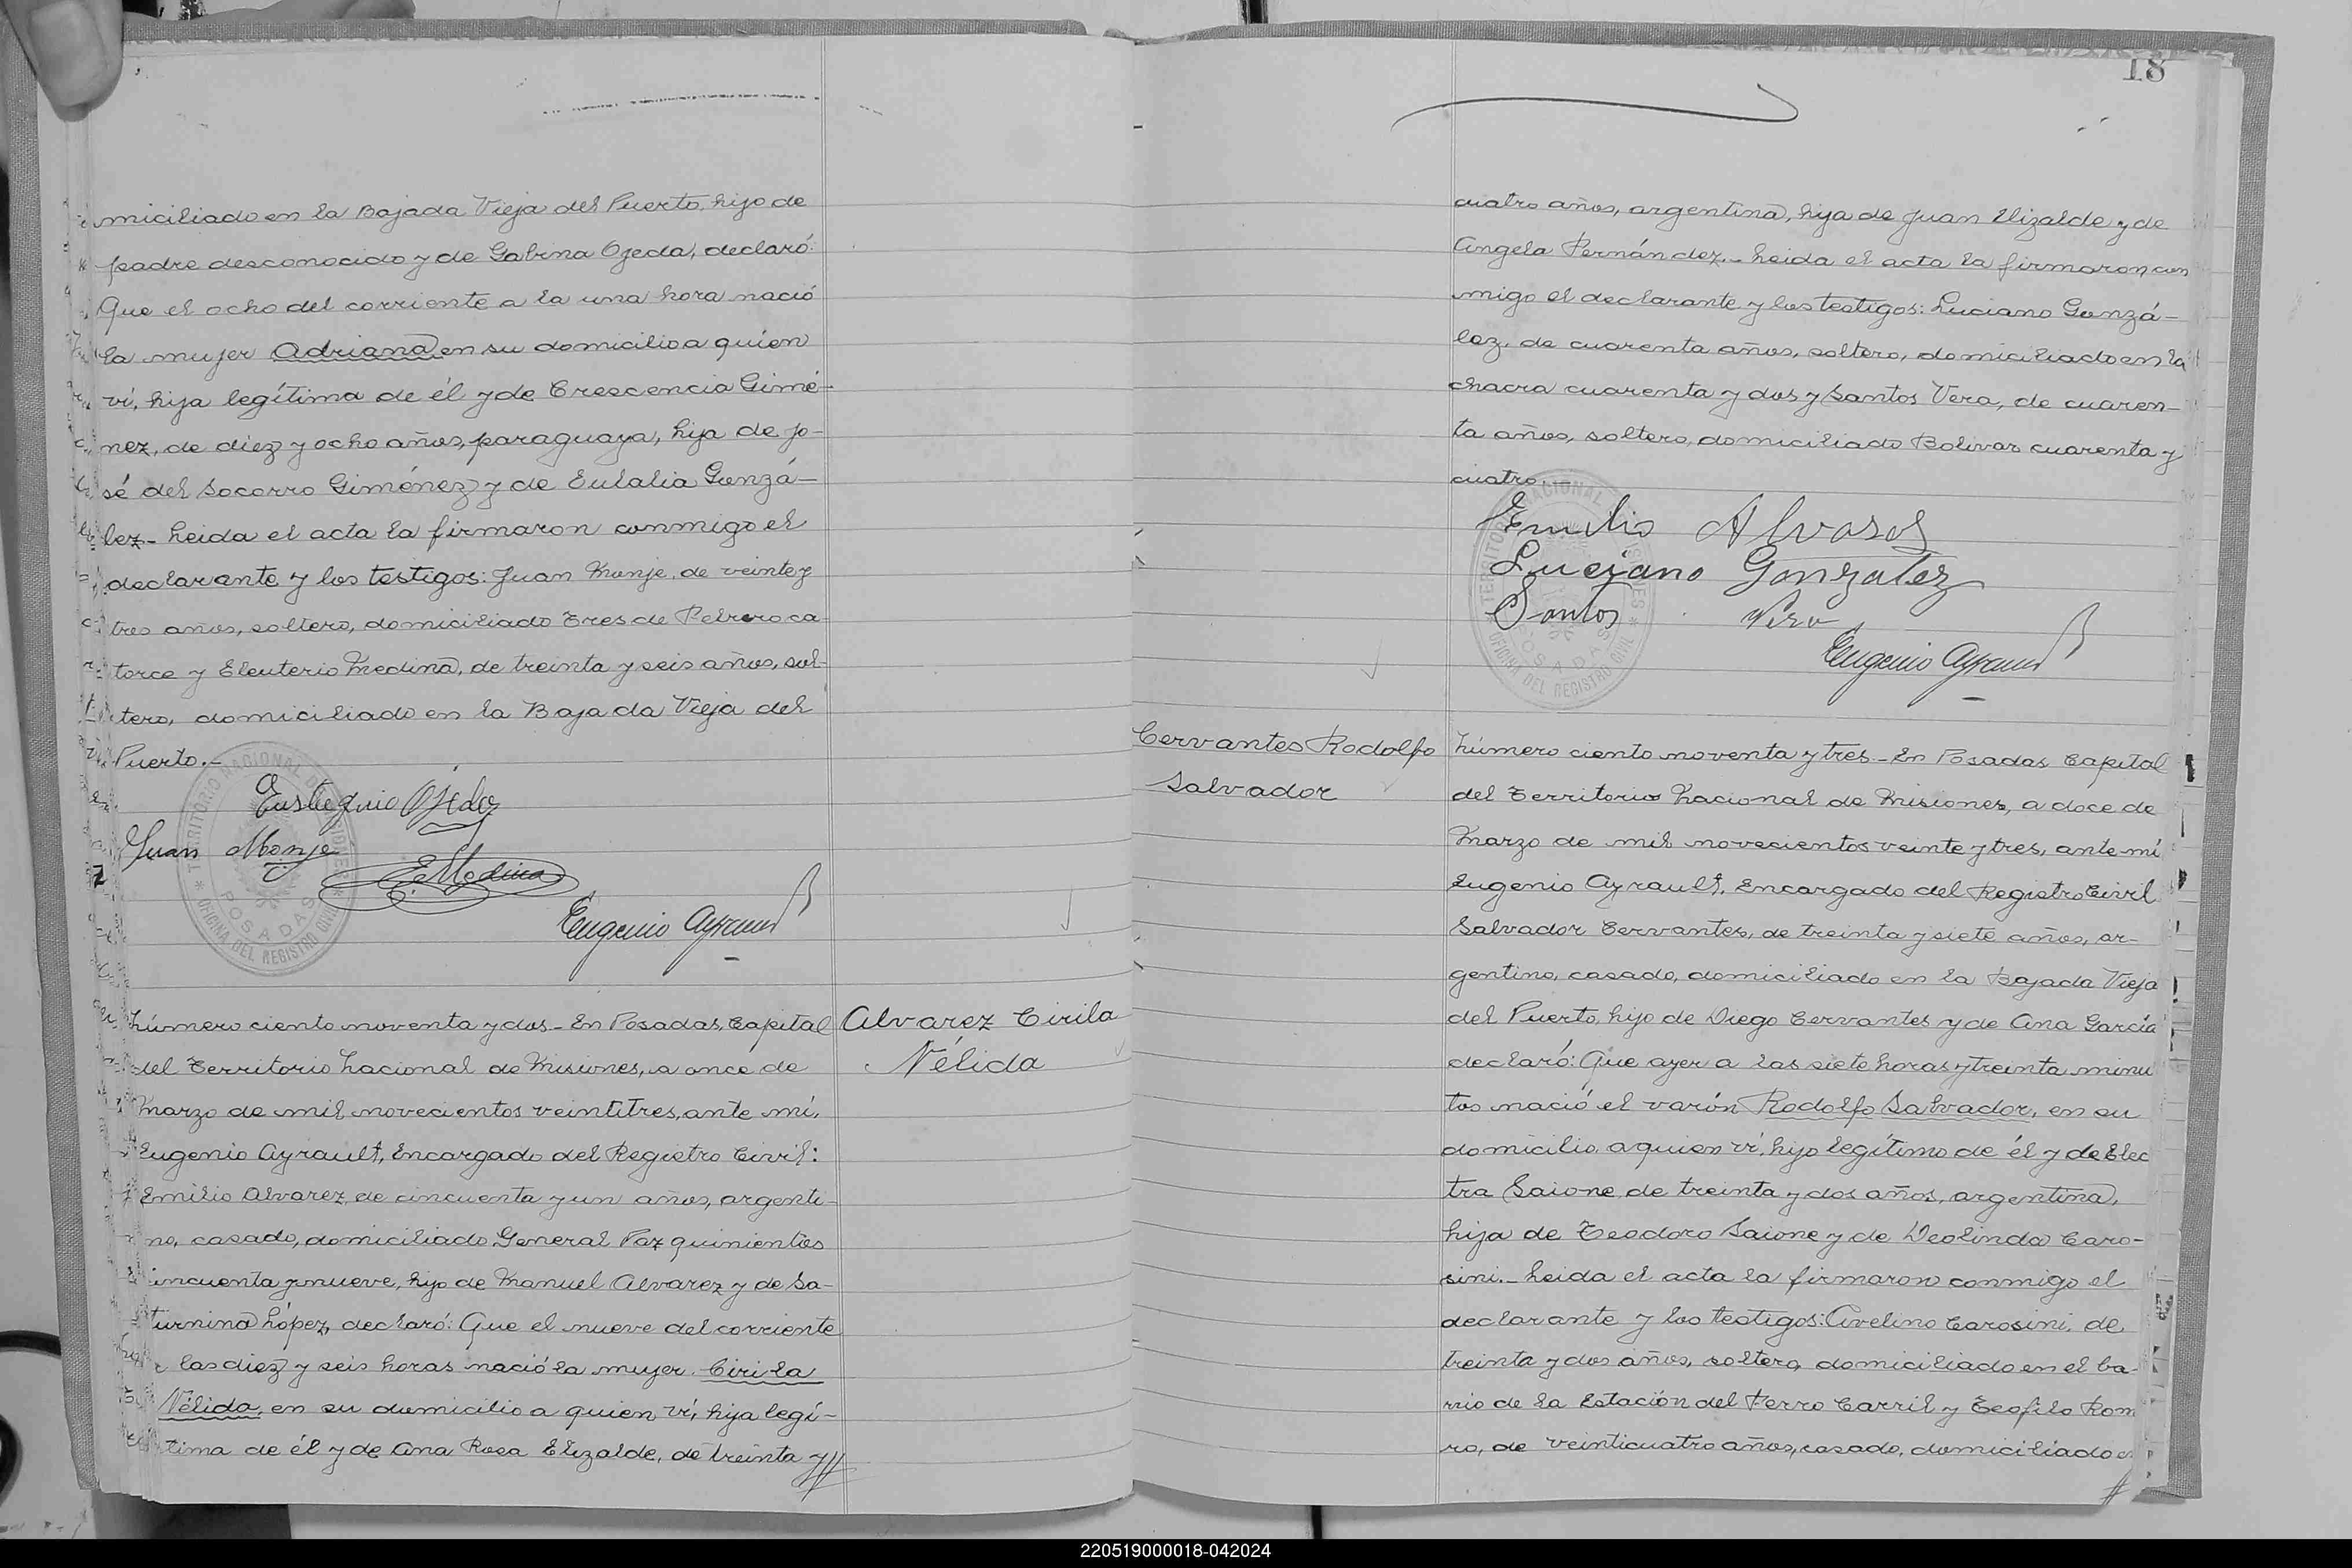 miciliado en la Bajada Vieja del Puerto, hijo de
padre desconocido y de Gabina Ojeda, declaró:
Que el ocho del corriente a la una hora nació
la mujer Adriana, en su domicilio a quien
ví, hija legítima de él y de Crescencia Gimé-
nez, de diez y ocho años, paraguaya, hija de Jo-
sé del Socorro Giménez y de Eulalia Gonzá-
lez.- Leida el acta la firmaron conmigo el
declarante y los testigos: Juan Monje, de veinte y
tres años, soltero, domiciliado Tres de Febrero ca-
torce y Eleuterio Medina, de treinta y seis años, sol-
tero, domiciliado en la Bajada Vieja del
Puerto.-
Eustaquio Ojeda
Juan Monje
E. Medina
Eugenio Ayrault
TERRITORIO NACIONAL DE MISIONES
POSADAS
* OFICINA DEL REGISTRO CIVIL *
Número ciento noventa y dos - En Posadas, Capital
del Territorio Nacional de Misiones, a once de
Marzo de mil novecientos veintitres, ante mí,
Eugenio Ayrault, Encargado del Registro Civil:
Emilio Alvarez, de cincuenta y un años, argenti-
no, casado, domiciliado General Paz quinientos
cincuenta y nueve, hijo de Manuel Alvarez y de Sa-
turnina López, declaró: Que el nueve del corriente
a las diez y seis horas nació la mujer Cirila
Nélida, en su domicilio a quien ví, hija legí-
tima de él y de Ana Rosa Elizalde, de treinta y //
Alvarez Cirila
Nélida
18
cuatro años, argentina, hija de Juan Elizalde y de
Angela Fernández.- Leida el acta la firmaron con
migo el declarante y los testigos: Luciano Gonzá-
lez, de cuarenta años, soltero, domiciliado en la
chacra cuarenta y dos y Santos Vera, de cuaren-
ta años, soltero, domiciliado Bolivar cuarenta y
cuatro.-
Emilio Alvares
Luciano Gonzalez
Santos Vera
Eugenio Ayrault
TERRITORIO NACIONAL DE MISIONES
POSADAS
* OFICINA DEL REGISTRO CIVIL *
Cervantes Rodolfo
Salvador
Número ciento noventa y tres - En Posadas Capital
del Territorio Nacional de Misiones, a doce de
Marzo de mil novecientos veinte y tres, ante mí
Eugenio Ayrault, Encargado del Registro Civil
Salvador Cervantes, de treinta y siete años, ar-
gentino, casado, domiciliado en la Bajada Vieja
del Puerto, hijo de Diego Cervantes y de Ana García
declaró: Que ayer a las siete horas y treinta minu
tos nació el varón Rodolfo Salvador, en su
domicilio, a quien ví, hijo legítimo de él y de Elec
tra Saione, de treinta y dos años, argentina,
hija de Teodoro Saione y de Deolinda Caro-
sini.- Leida el acta la firmaron conmigo el
declarante y los testigos: Avelino Carosini, de
treinta y dos años, soltero, domiciliado en el ba-
rrio de la Estación del Ferro Carril y Teofilo Rome
ro, de veinticuatro años, casado, domiciliado e
//
220519000018-042024